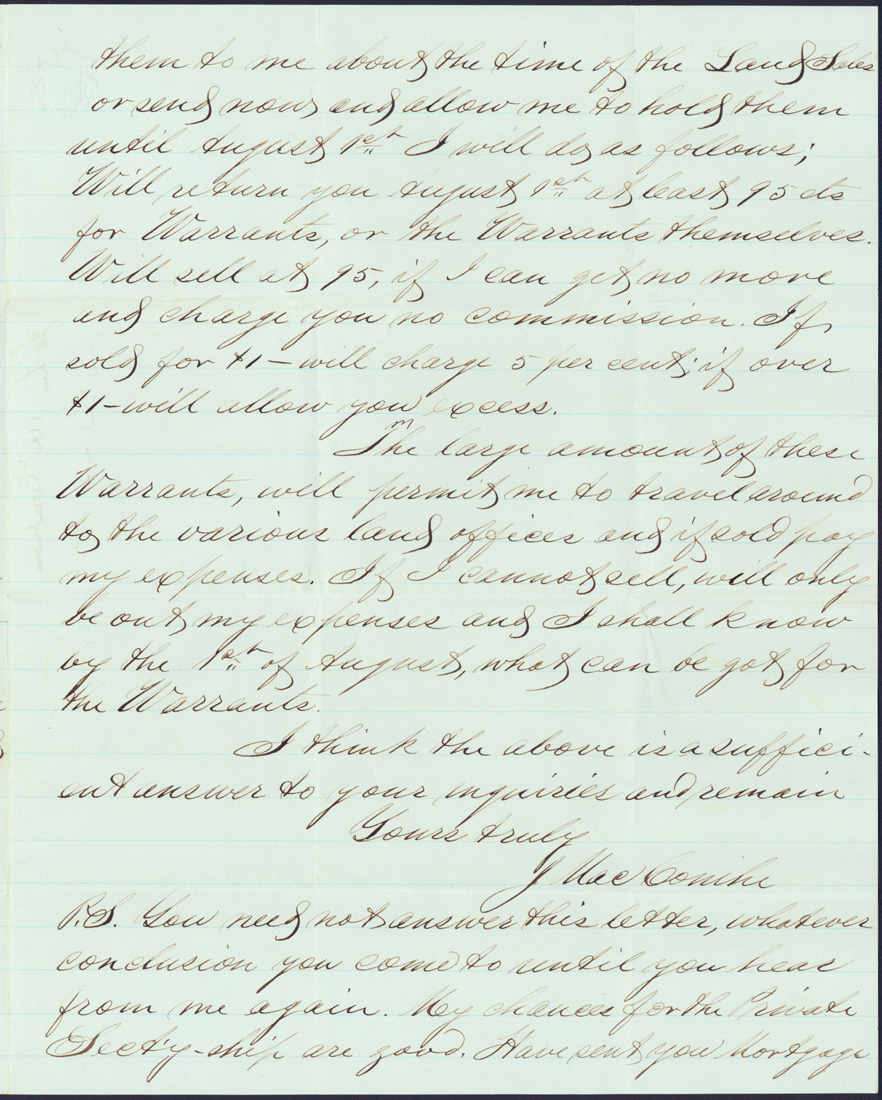 them to me about the time of the Land Sales
or send now and allow me to hold them
until August 1st I will do as follows;
Will return you August 1st at least 95 cts
for Warrants, or the Warrants themselves.
Will sell at 95, if I can get no more
and charge you no commission. If
sold for $1– will charge 5 per cent; if over
$1– will allow you excess.
The large amount of these
Warrants, will permit me to travel around
to the various land offices and if sold pay
my expenses. If I cannot sell, will only
be out my expenses and I shall know
by the 1st of August, what can be got for
the Warrants.
I think the above is a suffici-
ent answer to your inquiries and remain
Yours truly
J Mac Conihe
P.S. You need not answer this letter, whatever
conclusion you come to until you hear
from me again. My chances for the Private
Sect'y-ship are good. Have sent you Mortgage